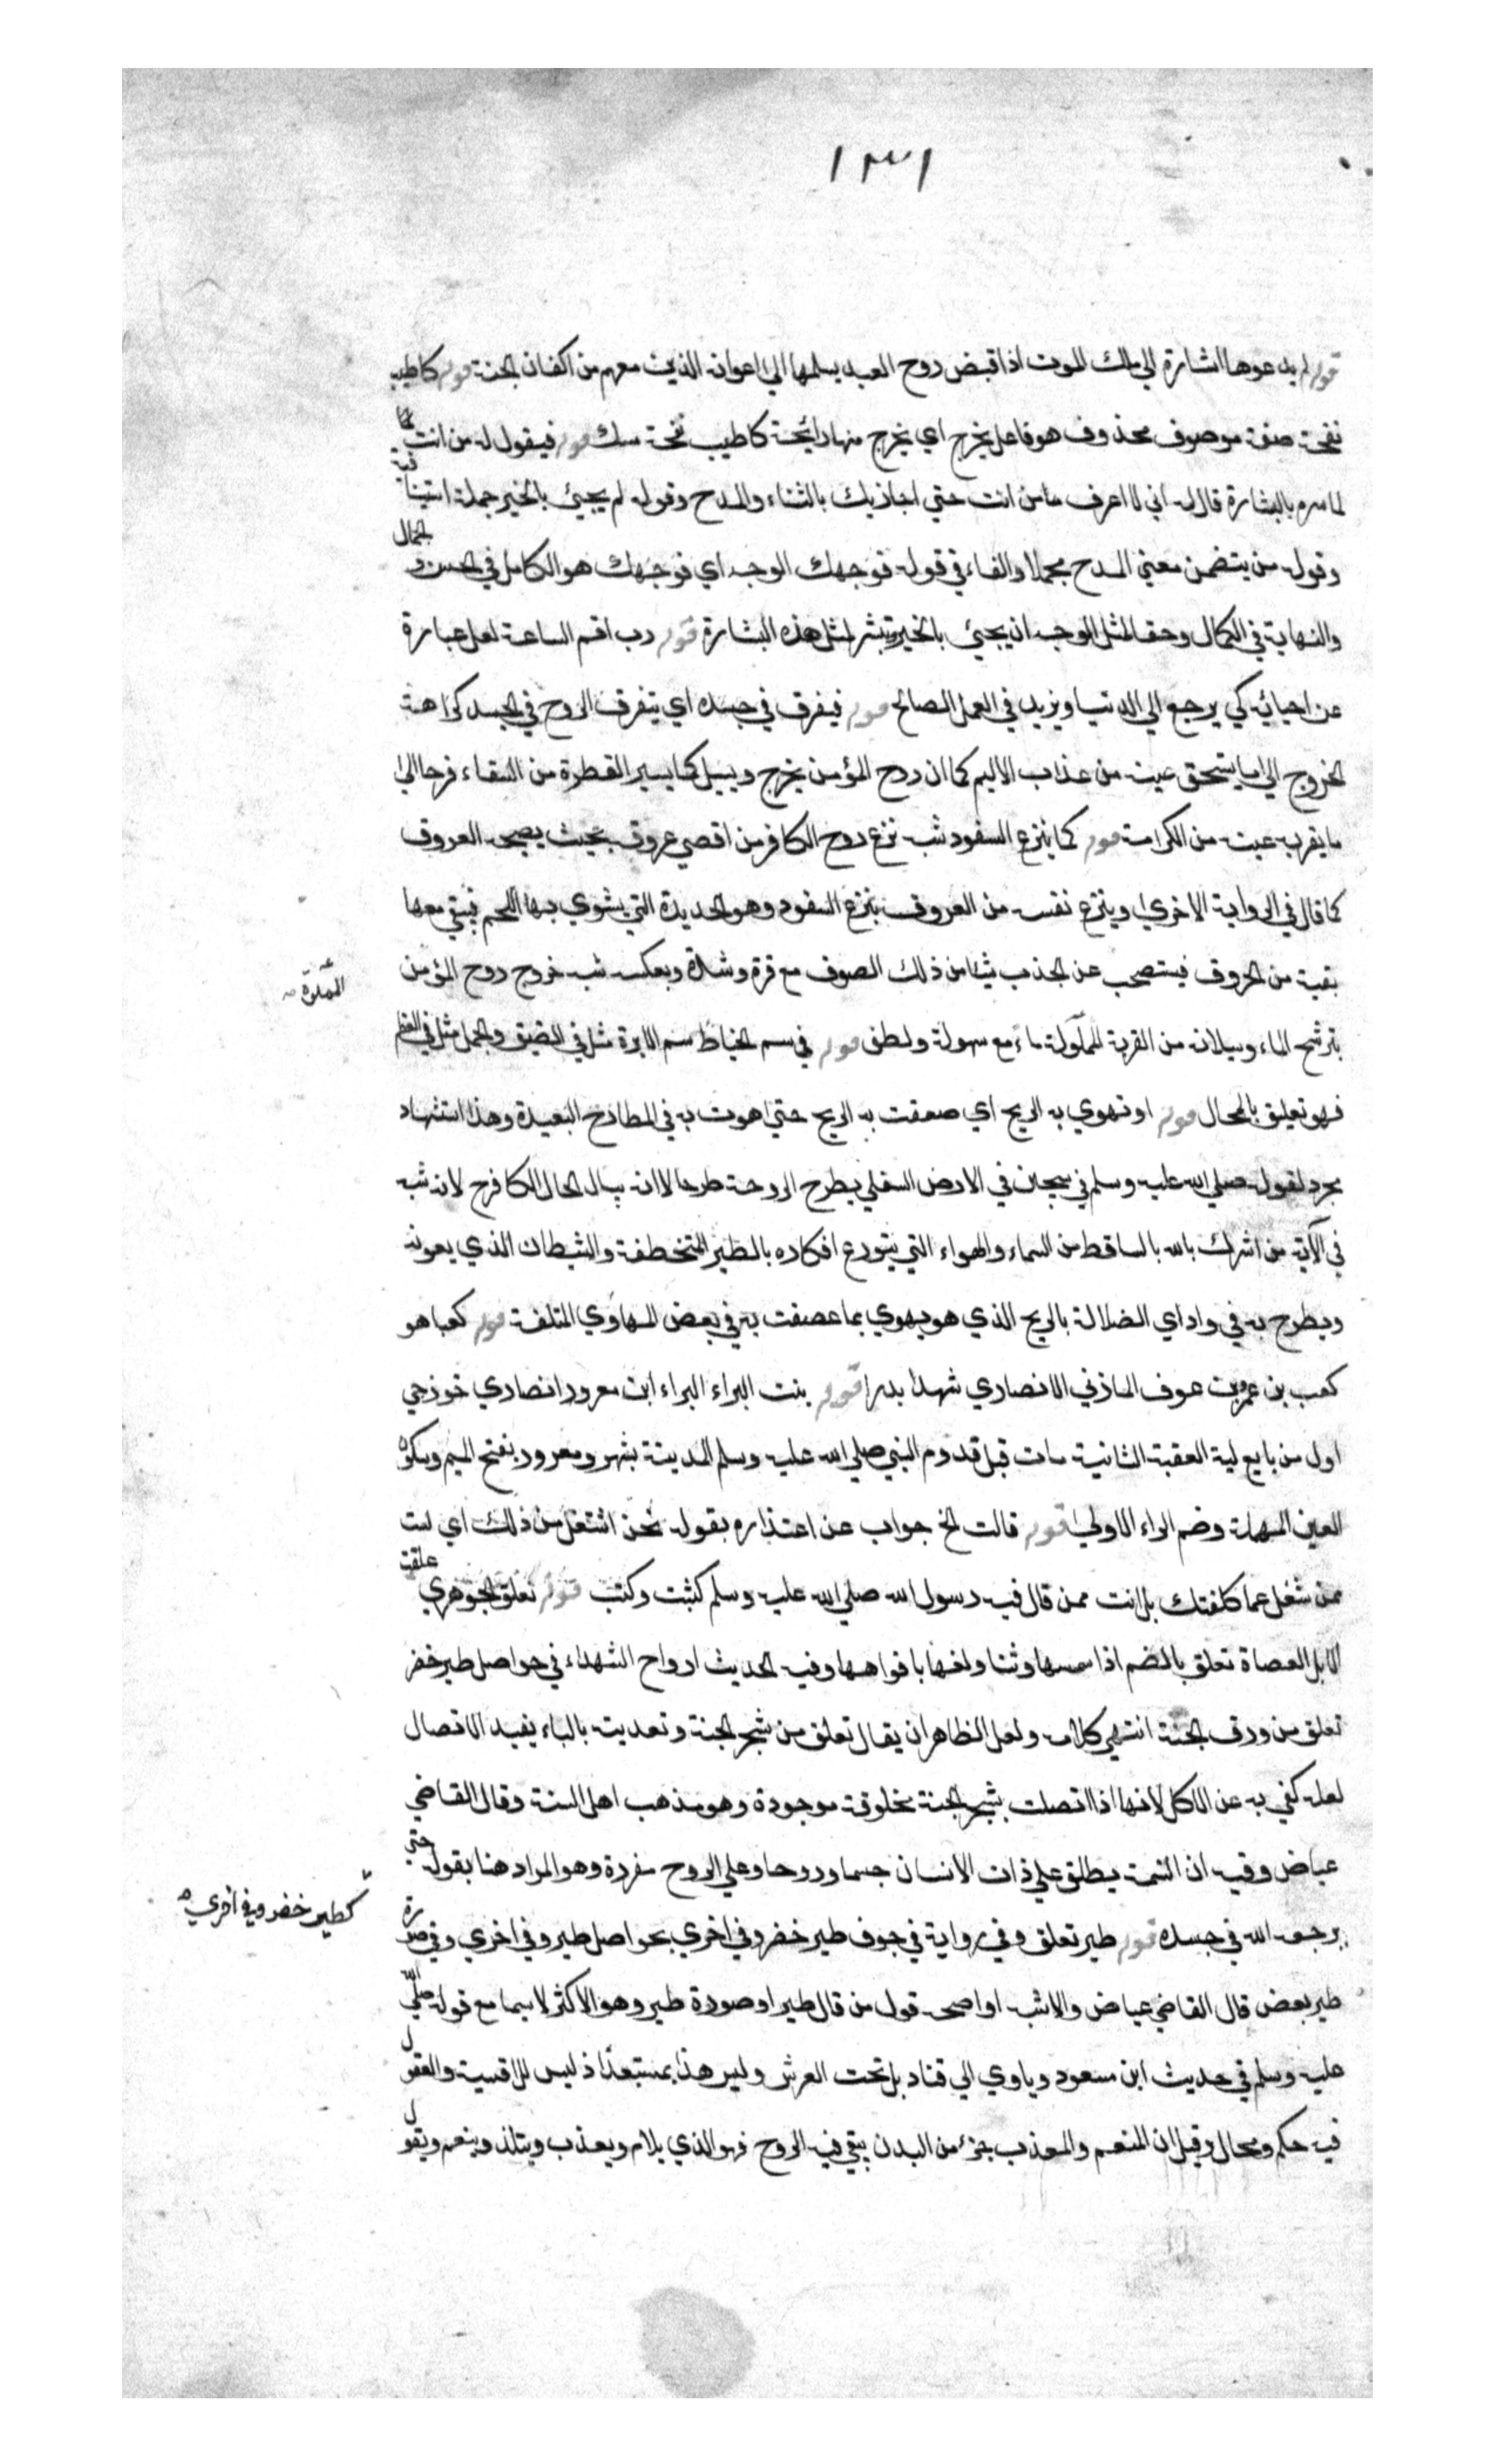 ١٣١
قوله لم يدعوها اشارة الي ملك الموت اذا قبض روح العبد يسلمها الي اعوانه الذين معهم من اكفان الجنة قوله كاطيب
نفحة صفة موصوف محذوف هو فاعل يخرج اي يخرج منها رائحة كاطيب نفحة مسك قوله فيقول له من انت كما
لما سره بالبشارة قال له اني لا اعرف ما من انت حتي اجازيك بالثناء والمدح وقوله لم يجيئ بالخير جملة استينافية
وقوله من يتضمن معني المدح مجملا والفاء في قوله فوجهك الوجه اي فوجهك هو الكامل في الحسن و الجمال
والنهاية في الكمال وحق لمثل الوجه ان يجيئ بالخير ويبشر لمثل هذه البشارة قوله رب اقم الساعة لعل عبارة
عن احيائه كي يرجع الي الدنيا ويزيد في العمل الصالح قوله فيفرق في جسده اي يتفرق الروح في الجسد كراهة
الخروج الي ما يستحق عينه من عذاب الاليم كما ان روح المؤمن يخرج ويسيل كما يسير القطرة من السقاء فرحا الي
ما يقرب عينه من الكرامة قوله كما ينزع السفود شبه نزع روح الكافر من اقصي عروقه بحيث يصحبه العروق
كما قال في الرواية الاخري وينزع نفسه من العروق بنزع السفود وهو الحديدة التي يشوي بها اللحم فيبقي معها
بقية من الحروق فيستصحب عن الجذب شيئا من ذلك الصوف مع قرة وشدة وبعكسه شبه خروج روح المؤمن
بترشح الماء وسيلانه من القربة المملولة ماء مع سهولة ولطف قوله في سم الخياط سم الابرة مثل في الضيق والجمل مثل في العظم
المملوّة صح
فهو تعليق بالمحال قوله او تهوي به الريح اي صعقت به الريح حتي اهوت به في المطارح البعيدة وهذا استشهاد
مجرد لقوله صلي الله عليه وسلم في سجين في الارض السفلي يطرح الروحة طرحا لا انه بيال لحال الكافرح لانه شبه
في الآية من اشرك بالله بالساقط من السماء والهواء التي يتوزع افكاره بالطير المتخطفة والشيطان الذي يعونه
ويطرح به في واداي الضلالة بالريح الذي هو يهوي بما عصفت به في بعض المهاوي المتلفة قوله كعبا هو
كعب بن عمرو بن عوف المازني الانصاري شهد بدرا قوله بنت البراء البراء ابن معرور انصاري خزرجي
اول من بايع لية العقبة الثانية مات قبل قدوم النبي صلي الله عليه وسلم المدينة بشهر ومعرور بفتح الميم وسكون
العين المهملة وضم الراء الاولي قوله قالت الخ جواب عن اعتذاره بقوله نحن اشتغل من ذلك اي لست
ممن شغل عما كلفتك بل انت ممن قال فيه رسول الله صلي الله عليه وسلم كثبت وكتب قوله تعلق الجوهري علقت
الابل العصاة تعلق بالضم اذا سمسها وتناولغها بافواهها وفيه الحديث ارواح الشهداء في حواصل طير خضر
تعلق من ورق الجنة انتهي كلامه ولعل الظاهر ان يقال تعلق من شجر الجنة وتعديته بالباء يفيد الاتصال
لعله كفي به عن الاكل لانها اذا اتصلت بشجر الجنة مخلوقة موجودة وهو مذهب اهل السنة وقال القاضي
عياض وفيه ان النسمة يطلق علي ذات الانسان جسما وروحا وعلي الروح مفردة وهو المراد هنا بقوله حتي
يرجعه الله في جسده قوله طير تعلق وفي رواية في جوف طير خضر وفي اخري بحواصل طير وفي اخري وفي صورة
كطير خضر وفي اخري
طير بعض قال القاضي عياض والاشبه او اصح قول من قال طيرا وصورة طير وهو الاكثر لاسيما مع قوله صلي الله
عليه وسلم في حديث ابن مسعود وياوي الي قناديل تحت العرش وليس هذا بمستبعد اذ ليس للاقسية والعقول
فيه حكم ومحال وقيل ان المنعم والمعذب جزء من البدن يبقي فيه الروح فهو الذي يلام ويعذب ويتلذ وينعم ويقول